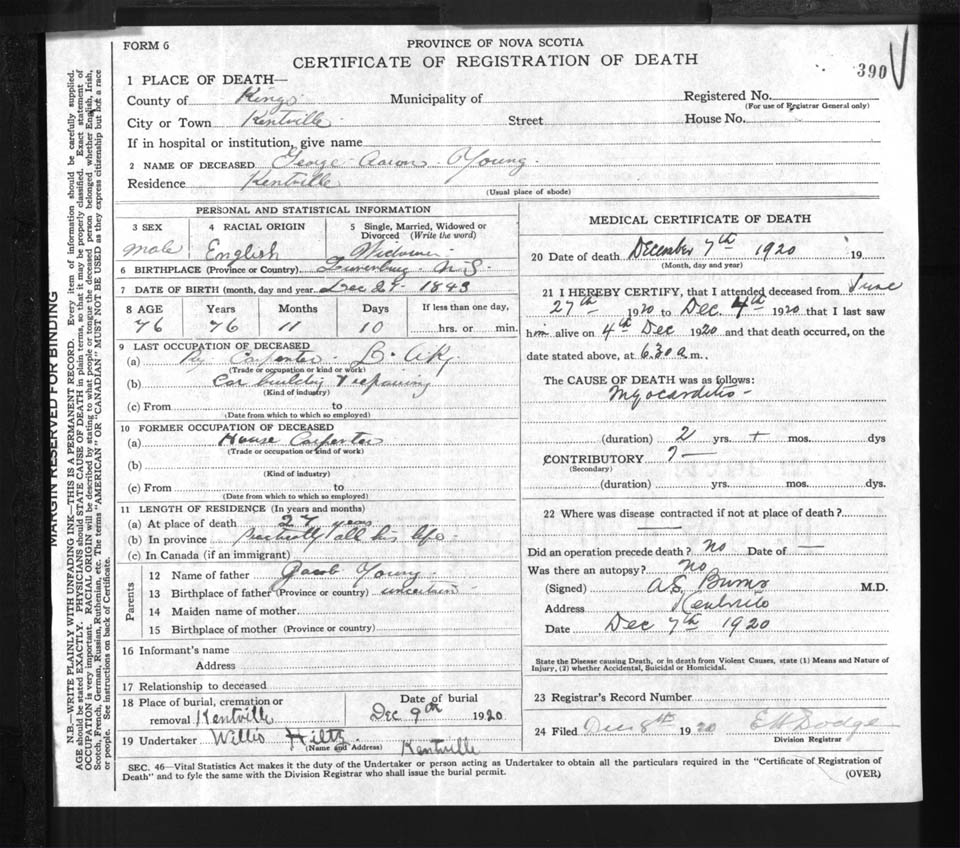 FORM 6
PROVINCE OF NOVA SCOTIA
CERTIFICATE OF REGISTRATION OF DEATH
390
1 PLACE OF DEATH—
County of Kings Municipality of Registered No.
(For use of Registrar General only)
City or Town Kentville Street House No.
If in hospital or institution, give name
2 NAME OF DECEASED George Aaron Young
Residence Kentville
(Usual place of abode)
PERSONAL AND STATISTICAL INFORMATION
3 SEX 4 RACIAL ORIGIN 5 Single, Married, Widowed or
Divorced (Write the word)
male English Widower
6 BIRTHPLACE (Province or Country) Lunenburg N.S.
7 DATE OF BIRTH (month, day and year) Dec 27 1843
8 AGE Years Months Days If less than one day,
76 76 11 10 hrs. or min.
9 LAST OCCUPATION OF DECEASED
(a) Ry. Carpenter D. A Ry.
(Trade or occupation or kind of work)
(b) Car building & repairing
(Kind of industry)
(c) From to
(Date from which to which so employed)
10 FORMER OCCUPATION OF DECEASED
(a) House Carpenter
(Trade or occupation or kind of work)
(b)
(Kind of industry)
(c) From to
(Date from which to which so employed)
11 LENGTH OF RESIDENCE (In years and months)
(a) At place of death 27 years
(b) In province practically all his life
(c) In Canada (if an immigrant)
Parents
12 Name of father Jacob Young
13 Birthplace of father (Province or country) uncertain
14 Maiden name of mother
15 Birthplace of mother (Province or country)
16 Informant's name
Address
17 Relationship to deceased
18 Place of burial, cremation or Date of burial
removal Kentville Dec 9th 1920
19 Undertaker Willis Hiltz Kentville
(Name and Address)
MEDICAL CERTIFICATE OF DEATH
20 Date of death December 7th 1920 19
(Month, day and year)
21 I HEREBY CERTIFY, that I attended deceased from June
27th 1920 to Dec. 4th 1920 that I last saw
him alive on 4th Dec 1920 and that death occurred, on the
date stated above, at 6.30 a m.
The CAUSE OF DEATH was as follows:
Myocarditis -
(duration) 2 yrs. + mos. dys
CONTRIBUTORY ? —
(Secondary)
(duration) yrs. mos. dys.
22 Where was disease contracted if not at place of death?
Did an operation precede death? No Date of —
Was there an autopsy? No
(Signed) M.D.
Address
Date Dec 7th 1920
State the Disease causing Death, or in death from Violent Causes, state (1) Means and Nature of
Injury, (2) whether Accidental, Suicidal or Homicidal.
23 Registrar's Record Number
24 Filed Dec 8th 1920 Dodge
Division Registrar
SEC. 46—Vital Statistics Act makes it the duty of the Undertaker or person acting as Undertaker to obtain all the particulars required in the "Certificate of Registration of
Death" and to fyle the same with the Division Registrar who shall issue the burial permit.
(OVER)
MARGIN RESERVED FOR BINDING
N.B.—WRITE PLAINLY WITH UNFADING INK—THIS IS A PERMANENT RECORD. Every item of information should be carefully supplied.
AGE should be stated EXACTLY. PHYSICIANS should STATE CAUSE OF DEATH in plain terms, so that it may be properly classified. Exact statement of
OCCUPATION is very important. RACIAL ORIGIN will be described by stating to what people or tongue the deceased person belonged whether English, Irish,
Scotch, French, German, Russian, Ruthenian, etc. The terms "AMERICAN" OR "CANADIAN" MUST NOT BE USED as they express citizenship but not a race
or people. See instructions on back of Certificate.